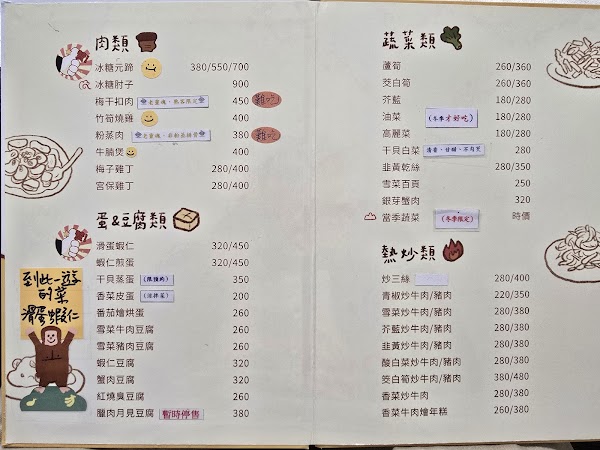 肉類
冰糖元蹄 380/550/700
冰糖肘子 900
梅干扣肉 老靈魂、熟客限定 450 難吃
竹筍燒雞 400
粉蒸肉 380 難吃
牛腩煲 400
梅子雞丁 280/400
宮保雞丁 280/400
蛋&豆腐類
滑蛋蝦仁 320/450
蝦仁煎蛋 320/400
干貝蒸蛋 350
香菜皮蛋 200
番茄燴烘蛋 260
雪菜牛肉豆腐 260
雪菜豬肉豆腐 260
蝦仁豆腐 320
蟹肉豆腐 320
紅燒臭豆腐 260
臘肉月見豆腐 暫時停售 380
到此一遊
的菜
滑蛋蝦仁
蔬菜類
蘆筍 260/360
茭白筍 260/360
芥藍 180/280
油菜 (冬季才好吃) 180/280
高麗菜 180/280
干貝白菜 280
韭黃乾絲 280/360
雪菜百頁 250
銀芽蟹肉 320
當季蔬菜 (冬季限定) 時價
熱炒類
炒三絲 280/400
青椒炒牛肉/豬肉 220/350
雪菜炒牛肉/豬肉 280/380
芥藍炒牛肉/豬肉 280/380
韭黃炒牛肉/豬肉 280/380
酸白菜炒牛肉/豬肉 280/380
茭白筍炒牛肉/豬肉 380/480
香菜炒牛肉 280/380
香菜牛肉燴年糕 260/380